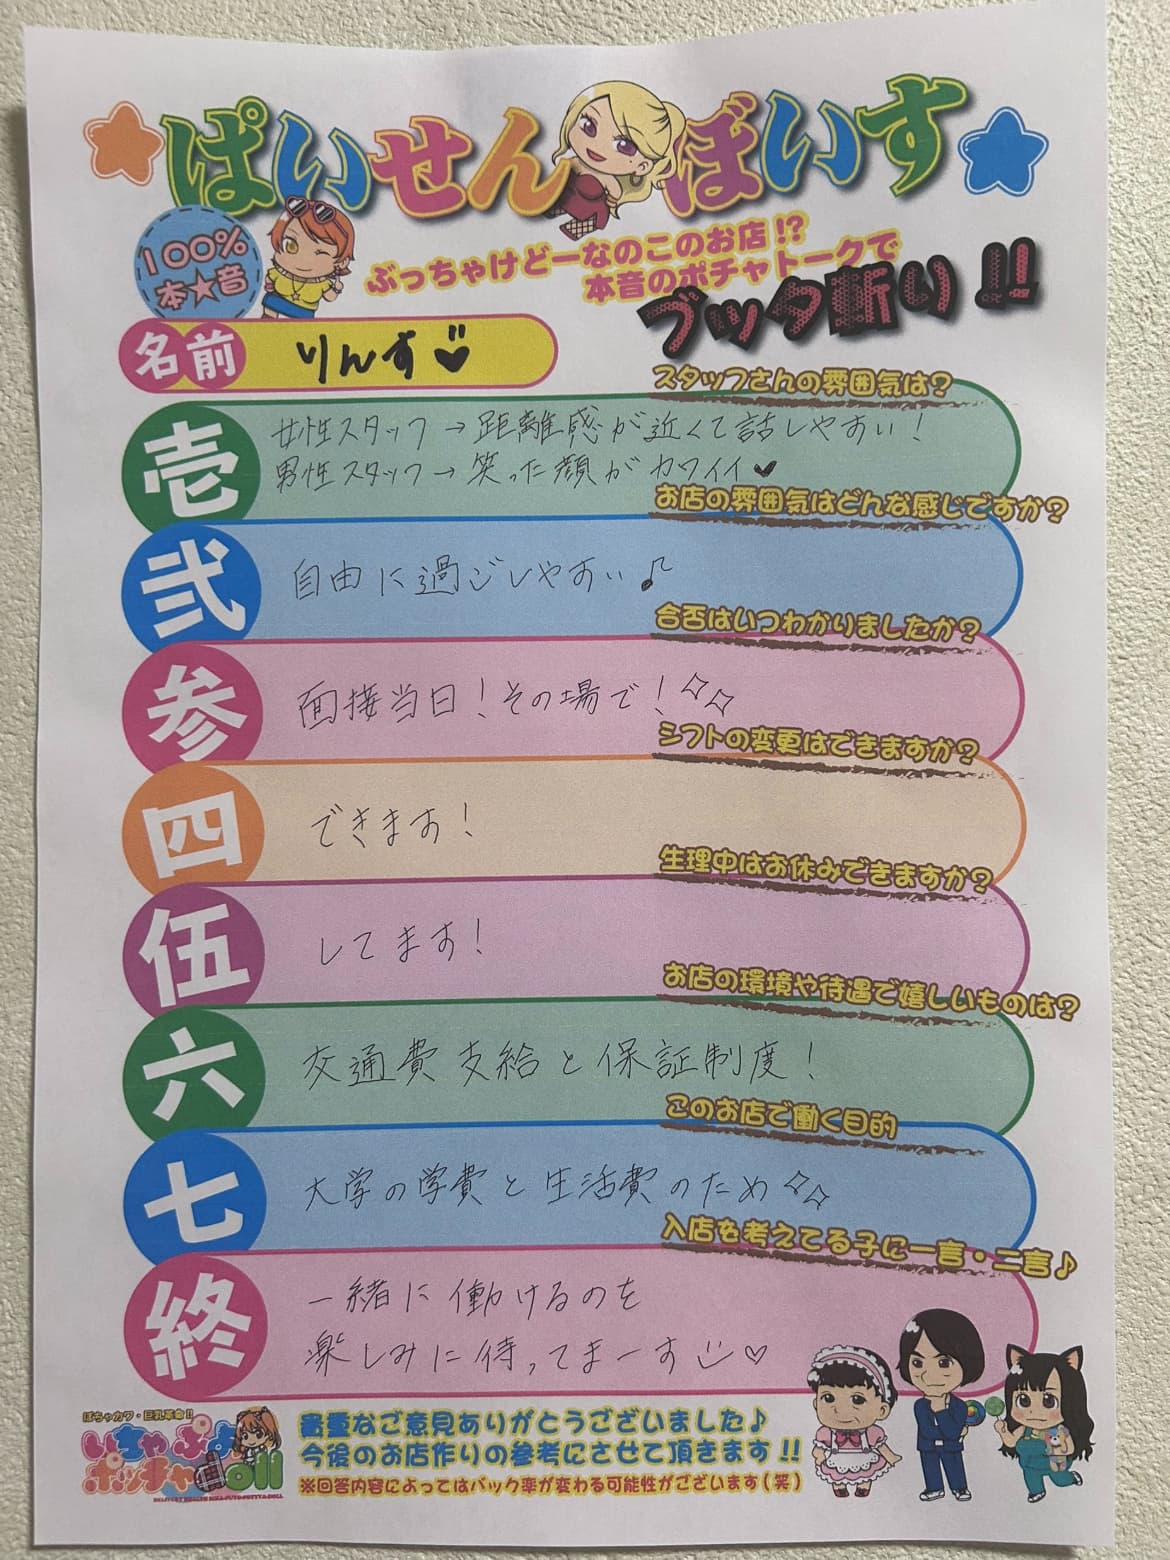 ぱいせんぼいす
100%
本★音
ぶっちゃけどーなのこのお店!?
本音のポチャトークで
ブッタ斬り!!
名前
りんす♥
スタッフさんの雰囲気は?
壱
女性スタッフ→距離感が近くて話しやすい!
男性スタッフ→笑った顔がカワイイ♥
お店の雰囲気はどんな感じですか?
弐
自由に過ごしやすい♪
合否はいつわかりましたか?
参
面接当日!その場で!
シフトの変更はできますか?
四
できます!
生理中はお休みできますか?
伍
してます!
お店の環境や待遇で嬉しいものは?
六
交通費支給と保証制度!
このお店で働く目的
七
大学の学費と生活費のため
入店を考えてる子に一言・二言♪
終
一緒に働けるのを
楽しみに待ってまーす♡
ぽちゃカワ・巨乳革命!!
いちゃぷよ
ポッチャdoll
貴重なご意見ありがとうございました♪
今後のお店作りの参考にさせて頂きます!!
※回答内容によってはバック率が変わる可能性がございます(笑)